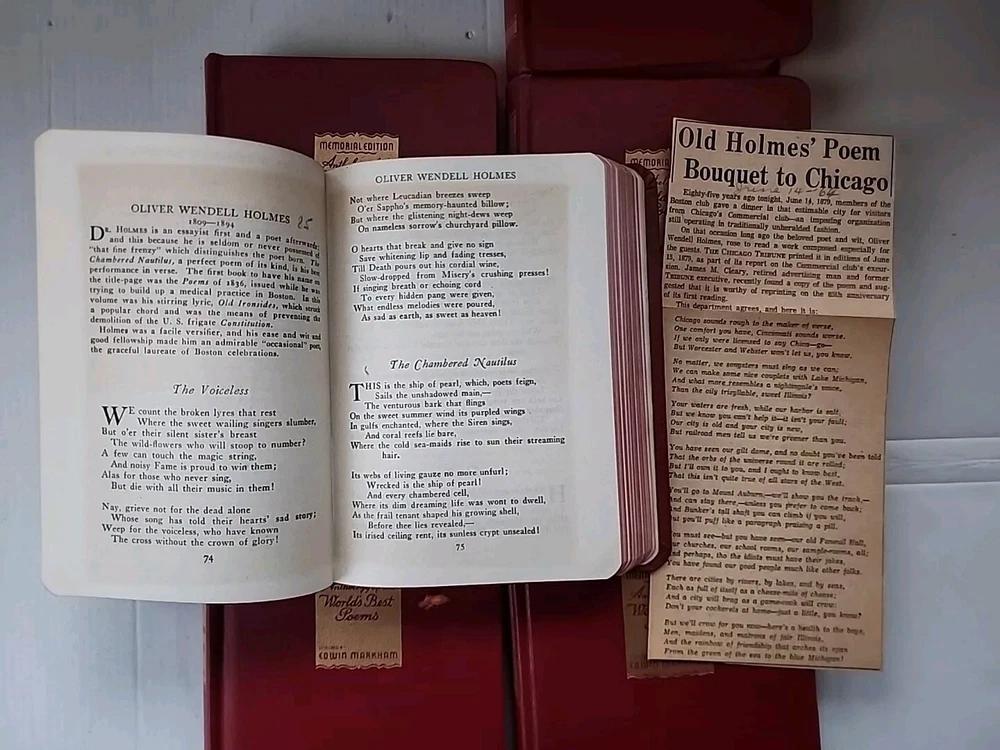 MEMORIAL EDITION
OLIVER WENDELL HOLMES 25
1809—1894
DR. HOLMES is an essayist first and a poet afterwards;
and this because he is seldom or never possessed of
"that fine frenzy" which distinguishes the poet born. The
Chambered Nautilus, a perfect poem of its kind, is his best
performance in verse. The first book to have his name on
the title-page was the Poems of 1836, issued while he was
trying to build up a medical practice in Boston. In this
volume was his stirring lyric, Old Ironsides, which struck
a popular chord and was the means of preventing the
demolition of the U. S. frigate Constitution.
Holmes was a facile versifier, and his ease and wit and
good fellowship made him an admirable "occasional" poet,
the graceful laureate of Boston celebrations.
The Voiceless
WE count the broken lyres that rest
Where the sweet wailing singers slumber,
But o'er their silent sister's breast
The wild-flowers who will stoop to number?
A few can touch the magic string,
And noisy Fame is proud to win them;
Alas for those who never sing,
But die with all their music in them!
Nay, grieve not for the dead alone
Whose song has told their hearts' sad story;
Weep for the voiceless, who have known
The cross without the crown of glory!
74
OLIVER WENDELL HOLMES
Not where Leucadian breezes sweep
O'er Sappho's memory-haunted billow;
But where the glistening night-dews weep
On nameless sorrow's churchyard pillow.
O hearts that break and give no sign
Save whitening lip and fading tresses,
Till Death pours out his cordial wine,
Slow-dropped from Misery's crushing presses!
If singing breath or echoing cord
To every hidden pang were given,
What endless melodies were poured,
As sad as earth, as sweet as heaven!
The Chambered Nautilus
THIS is the ship of pearl, which, poets feign,
Sails the unshadowed main,—
The venturous bark that flings
On the sweet summer wind its purpled wings
In gulfs enchanted, where the Siren sings,
And coral reefs lie bare,
Where the cold sea-maids rise to sun their streaming
hair.
Its webs of living gauze no more unfurl;
Wrecked is the ship of pearl!
And every chambered cell,
Where its dim dreaming life was wont to dwell,
As the frail tenant shaped his growing shell,
Before thee lies revealed,—
Its irised ceiling rent, its sunless crypt unsealed!
75
World's Best
Poems
EDWIN MARKHAM
MEMORIA
Old Holmes' Poem
Bouquet to Chicago
June 14-64
Eighty-five years ago tonight, June 14, 1879, members of the
Boston club gave a dinner in that estimable city for visitors
from Chicago's Commercial club—an imposing organization
still operating in traditionally unheralded fashion.
On that occasion long ago the beloved poet and wit, Oliver
Wendell Holmes, rose to read a work composed especially for
the guests. THE CHICAGO TRIBUNE printed it in editions of June
15, 1879, as part of its report on the Commercial club's excur-
sion. James M. Cleary, retired advertising man and former
TRIBUNE executive, recently found a copy of the poem and sug-
gested that it is worthy of reprinting on the 85th anniversary
of its first reading.
This department agrees, and here it is:
Chicago sounds rough to the maker of verse,
One comfort you have, Cincinnati sounds worse.
If we only were licensed to say Chica—go—
But Worcester and Webster won't let us, you know.
No matter, we songsters must sing as we can;
We can make some nice couplets with Lake Michigan,
And what more resembles a nightingale's voice,
Than the oily trisyllable, sweet Illinois?
Your waters are fresh, while our harbor is salt,
But we know you can't help it—it isn't your fault;
Our city is old and your city is new,
But railroad men tell us we're greener than you.
You have seen our gilt dome, and no doubt you've been told
That the orbs of the universe round it are rolled;
But I'll own it to you, and I ought to know best,
That this isn't quite true of all stars of the West.
You'll go to Mount Auburn,—we'll show you the track,—
And can stay there,—unless you prefer to come back;
And Bunker's tall shaft you can climb if you will,
But you'll puff like a paragraph praising a pill.
You must see—but you have seen—our old Faneuil Hall,
Our churches, our school rooms, our sample-rooms, all;
And perhaps, tho the idiots must have their jokes,
You have found our good people much like other folks.
There are cities by rivers, by lakes, and by seas,
Each as full of itself as a cheese-mite of cheese;
And a city will brag as a game-cock will crow:
Don't your cockerels at home—just a little, you know?
But we'll crow for you now—here's a health to the boys,
Men, maidens, and matrons of fair Illinois,
And the rainbow of friendship that arches its span
From the green of the sea to the blue Michigan!